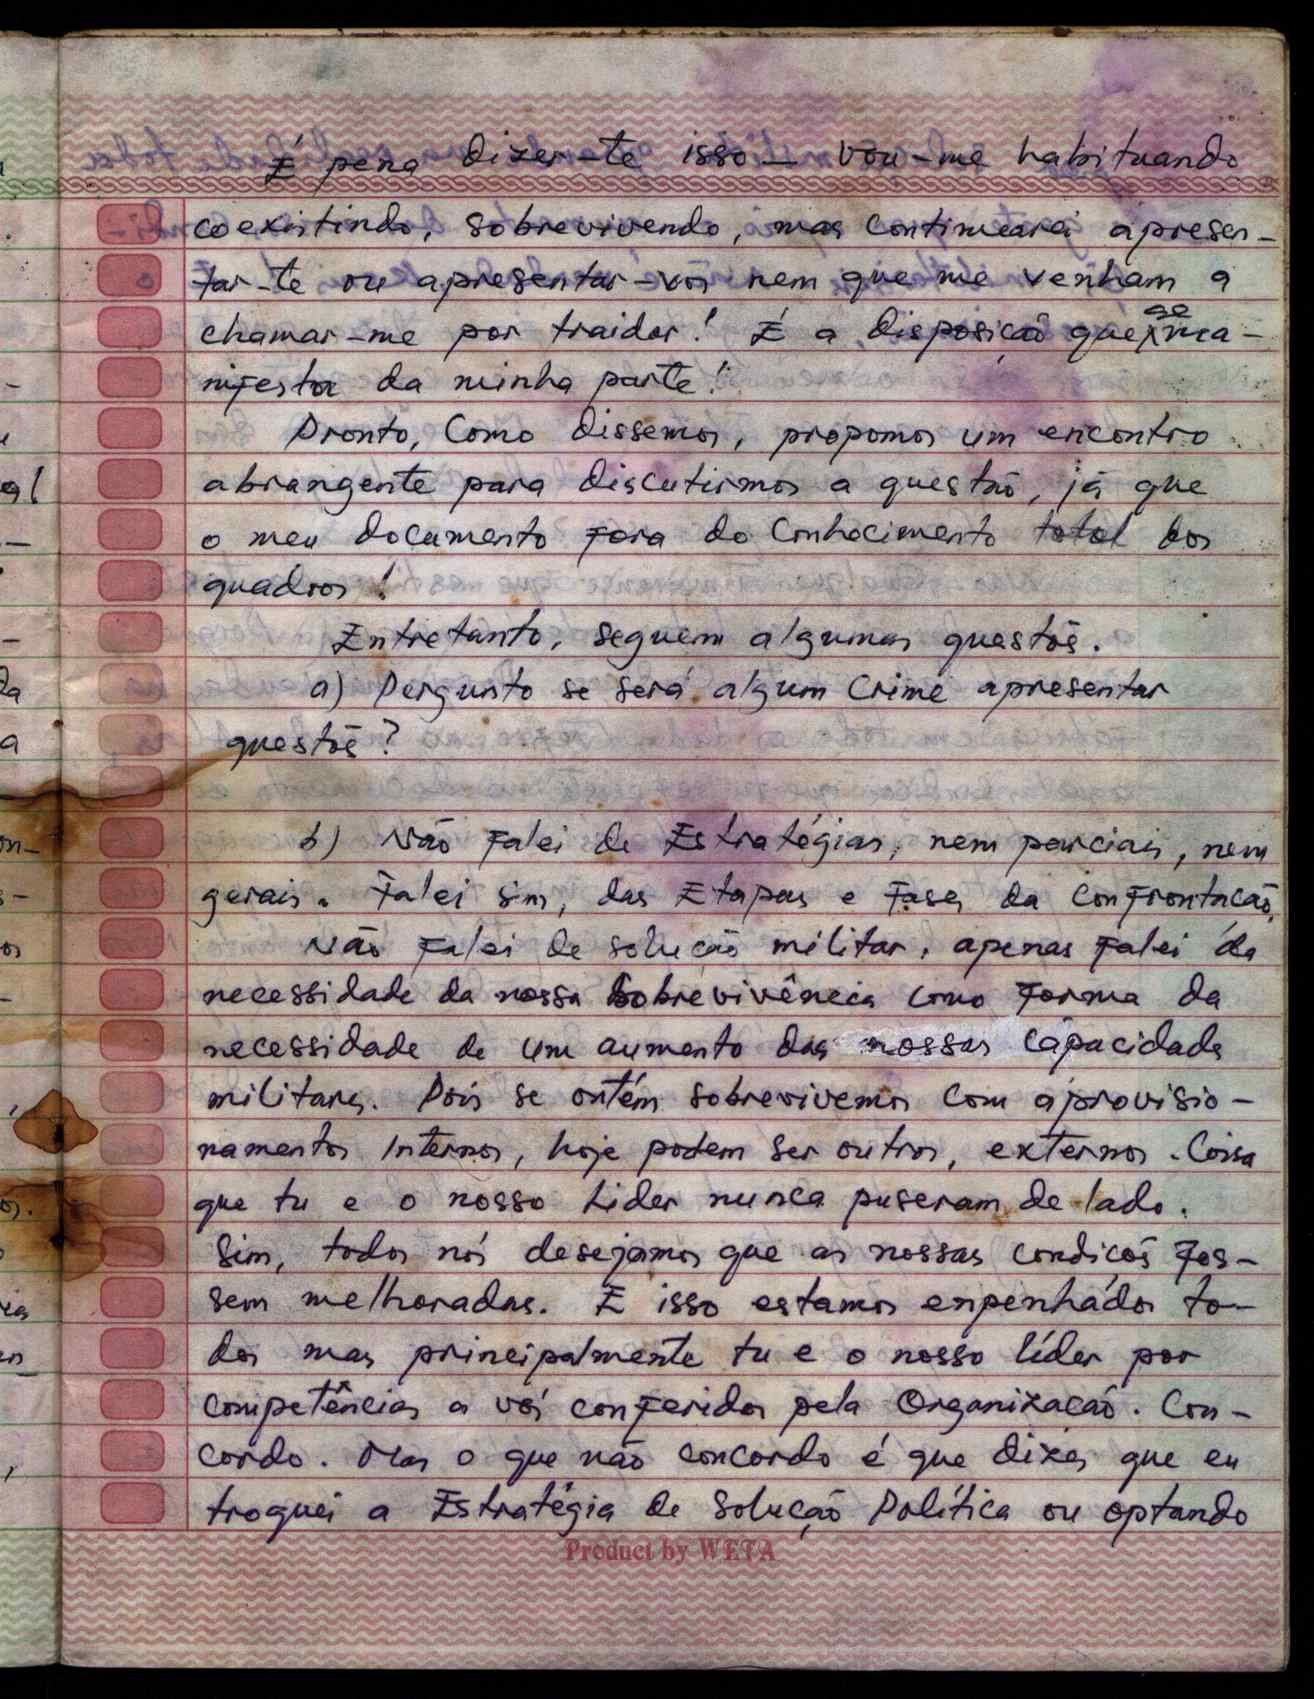 É pena dizer-te isso - vou-me habituando
coexistindo, sobrevivendo, mas continuarei apresen-
tar-te ou apresentar-vos nem que me venham a
chamar-me por traidor! É a disposição que se ma-
nifesta da minha parte!
Pronto, Como dissemos, propomos um encontro
abrangente para discutirmos a questão, já que
o meu documento fora do conhecimento total dos
quadros!
Entretanto, seguem algumas questõs.
a) Pergunto se será algum crime apresentar
questõs?
b) Não falei de Estratégias, nem parciais, nem
gerais. Falei sim, das Etapas e Fases da confrontação.
Não falei de solução militar, apenas falei da
necessidade da nossa sobrevivência como forma da
necessidade de um aumento das nossas capacidade
militares. Pois se ontém sobrevivemos com aprovisio-
namentos internos, hoje podem ser outros, externos. Coisa
que tu e o nosso Lider nunca puseram de lado.
Sim, todos nós desejamos que as nossas condiços fos-
sem melhoradas. E isso estamos enpenhádos to-
dos mas principalmente tu e o nosso líder por
competências a vós conferidos pela Organização. Con-
cordo. Mas o que não concordo é que dizes que eu
troquei a Estratégia de Solução Política ou optando
Product by WETA